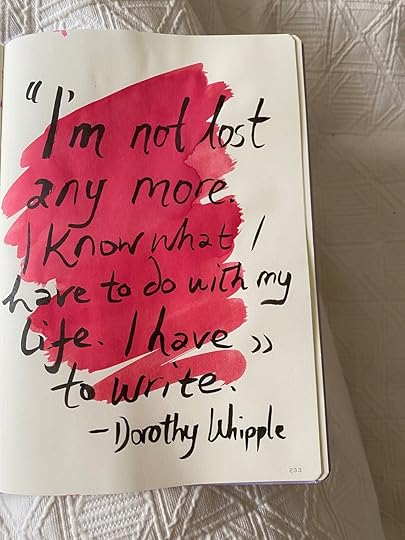 “I'm not lost
any more.
I know what I
have to do with my
life. I have »
to write.
-Dorothy Whipple
233